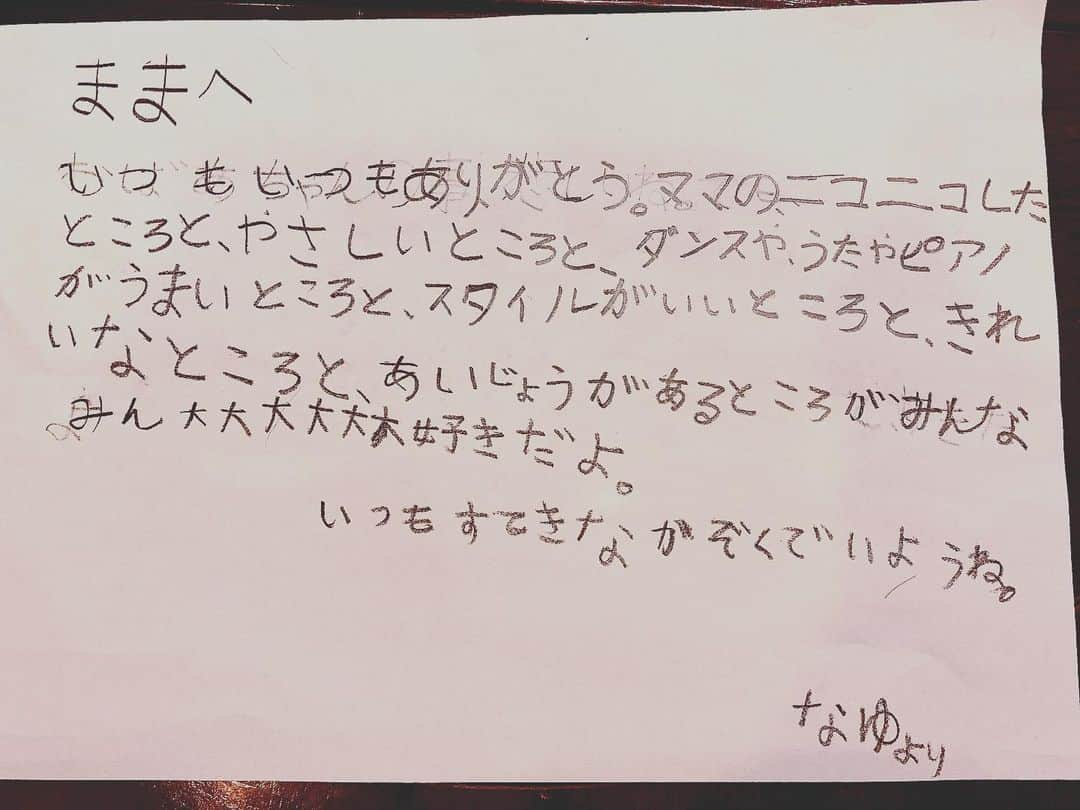 ままへ
いつもいつもありがとう。ママのニコニコした
ところと、やさしいところと、ダンスや、うたやピアノ
がうまいところと、スタイルがいいところと、きれ
いなところと、あいじょうがあるところがみんな
みん大大大大大大好きだよ。
いつもすてきなかぞくでいようね。
なゆより